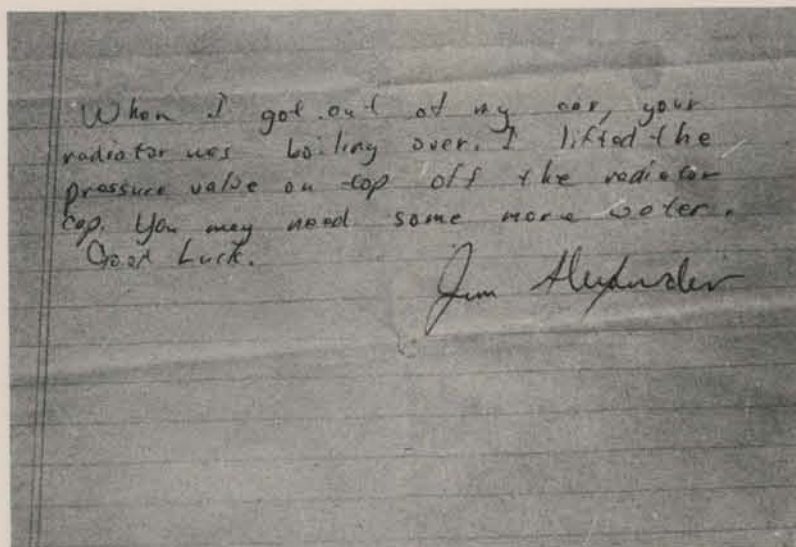 When I got out of my car, your
radiator was boiling over. I lifted the
pressure valve on top off the radiator
cap. You may need some more water.
Good Luck.
Jim Alexander